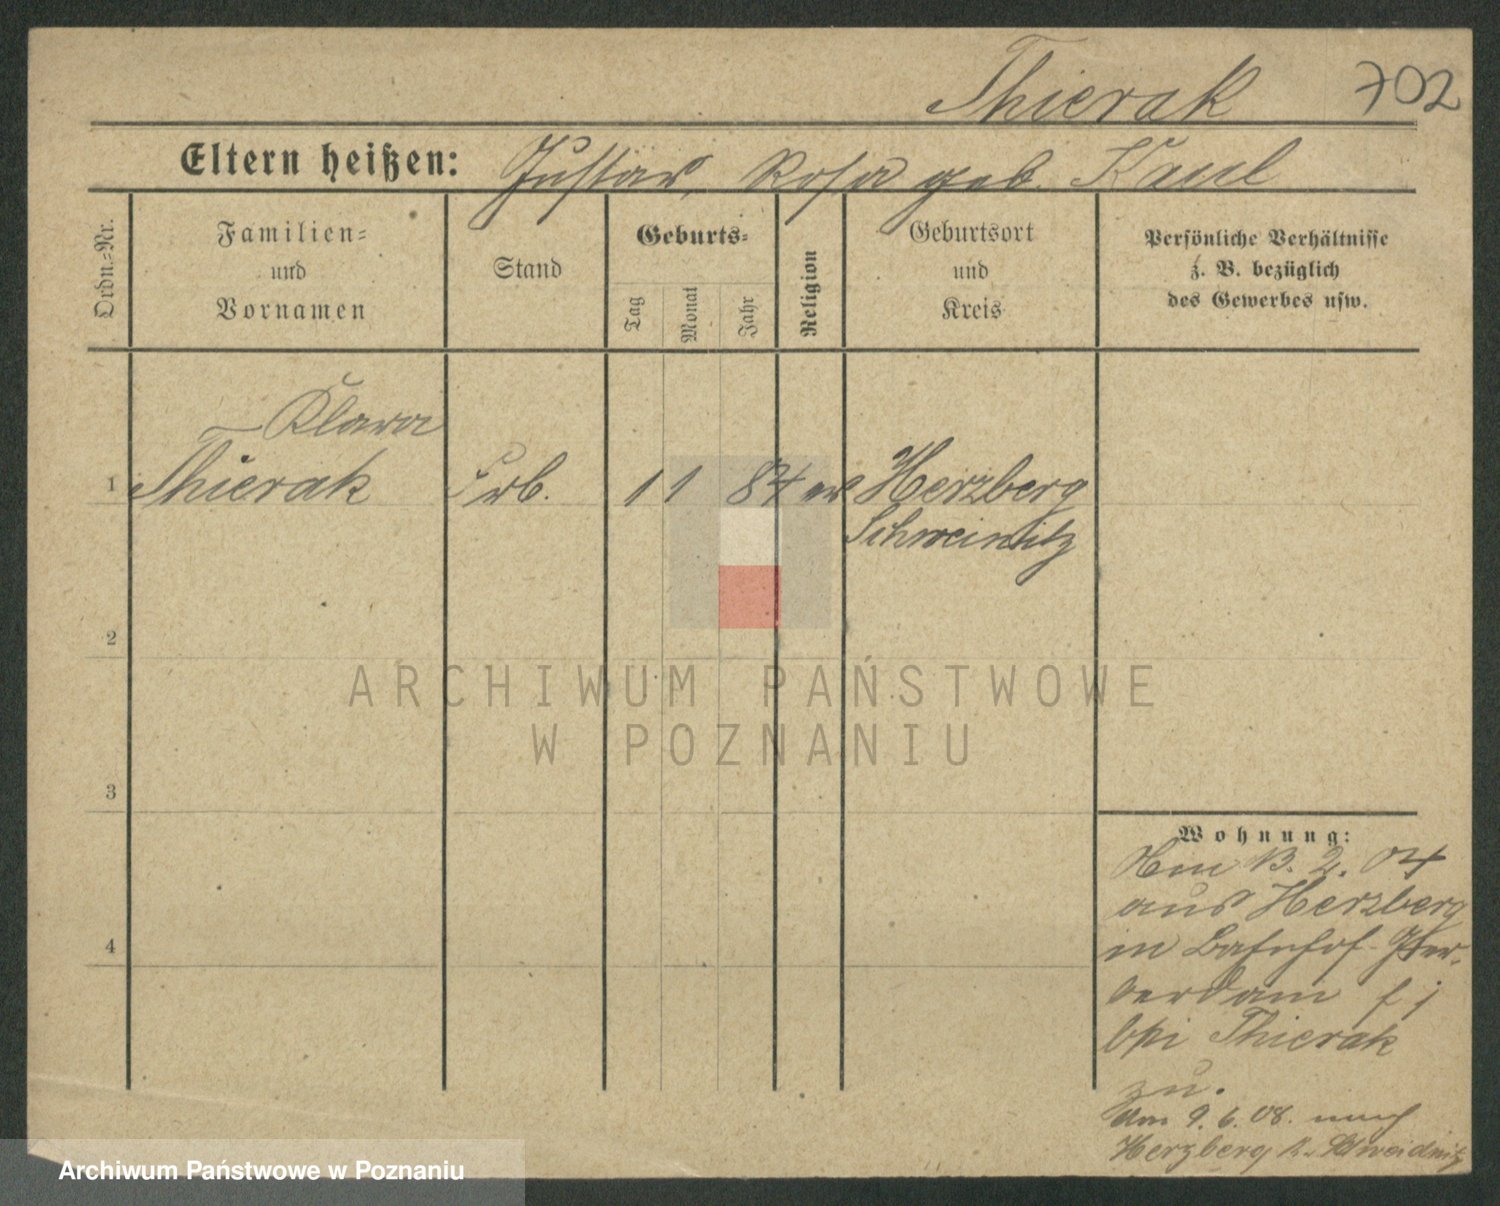 Thierak 702
Eltern heißen: Gustav, Rosa geb. Kaul
Ordn.-Nr.
Familien-
und
Vornamen
Stand
Geburts-
Tag
Monat
Jahr
Religion
Geburtsort
und
Kreis
Persönliche Verhältnisse
z. B. bezüglich
des Gewerbes usw.
Klara
1 Thierak Arb. 1 1 84 ev Herzberg
Schweinitz
2
3
4
Wohnung:
Am 13. 2. 04
aus Herzberg
in Bahnhof-
bei Thierak
zu.
Am 9. 6. 08. nach
Herzberg K. Schweidnitz
ARCHIWUM PAŃSTWOWE
W POZNANIU
Archiwum Państwowe w Poznaniu